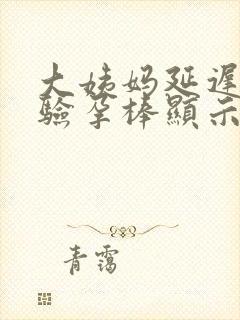 大姨妈延遲
驗孕棒顯示
青靄